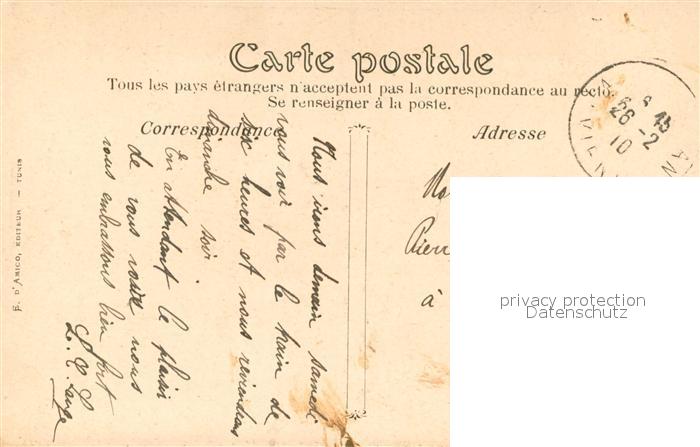 Carte postale
Tous les pays étrangers n'acceptent pas la correspondance au recto.
Se renseigner à la poste.
Correspondance
Adresse
Nous irons demain samedi
vous voir par le train de
six heures et nous reviendrons
dimanche soir
En attendant le plaisir
de vous voir nous
vous embrassons bien fort
Pierr
à
26 -2
10
F. D'AMICO, EDITEUR — TUNIS
privacy protection
Datenschutz